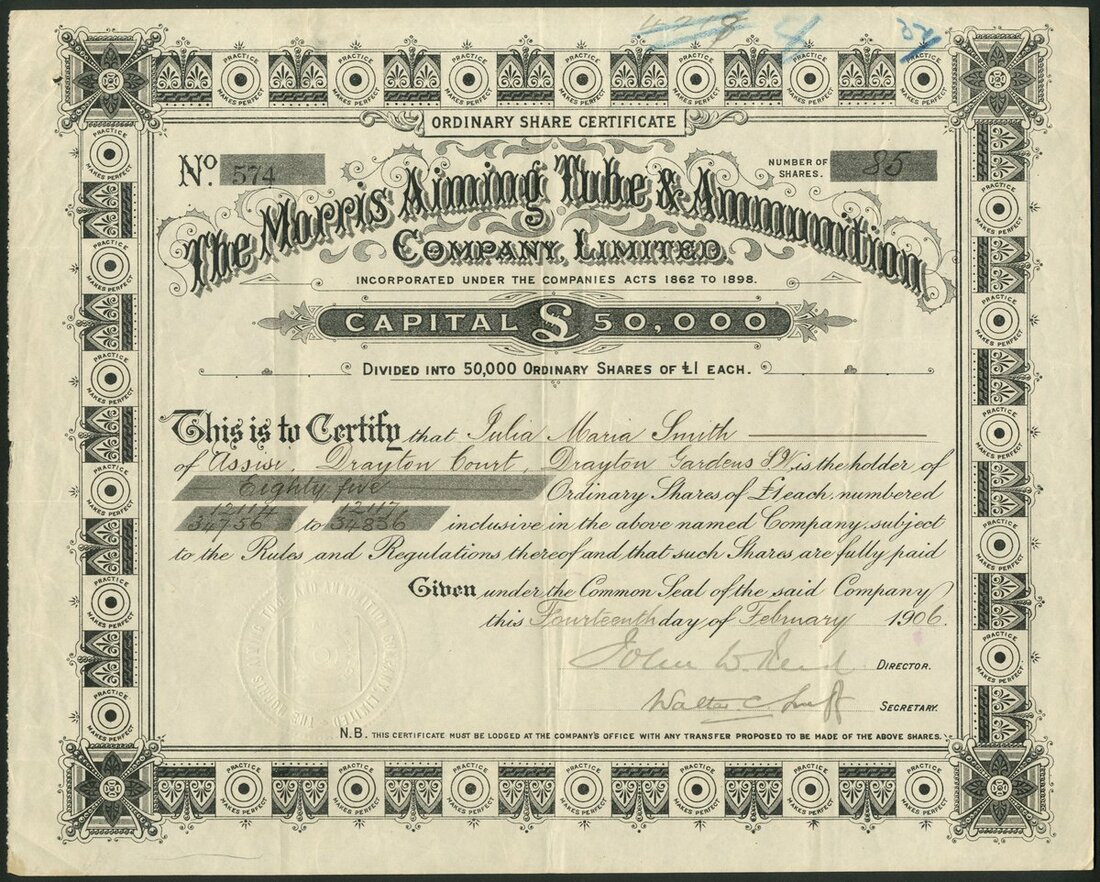 4218 4 34
PRACTICE MAKES PERFECT
ORDINARY SHARE CERTIFICATE
No. 574
NUMBER OF SHARES. 85
The Morris Aiming Tube & Ammunition
COMPANY, LIMITED.
INCORPORATED UNDER THE COMPANIES ACTS 1862 TO 1898.
CAPITAL £ 50,000
DIVIDED INTO 50,000 ORDINARY SHARES OF £1 EACH.
This is to Certify that Julia Maria Smith
of Assisi, Drayton Court, Drayton Gardens SW, is the holder of
Eighty five Ordinary Shares of £1 each, numbered
34756 to 34836 inclusive in the above named Company, subject
to the Rules and Regulations thereof and that such Shares are fully paid
Given under the Common Seal of the said Company
this Fourteenth day of February 1906.
John W. DIRECTOR.
Walter C. SECRETARY.
N.B. THIS CERTIFICATE MUST BE LODGED AT THE COMPANY'S OFFICE WITH ANY TRANSFER PROPOSED TO BE MADE OF THE ABOVE SHARES.